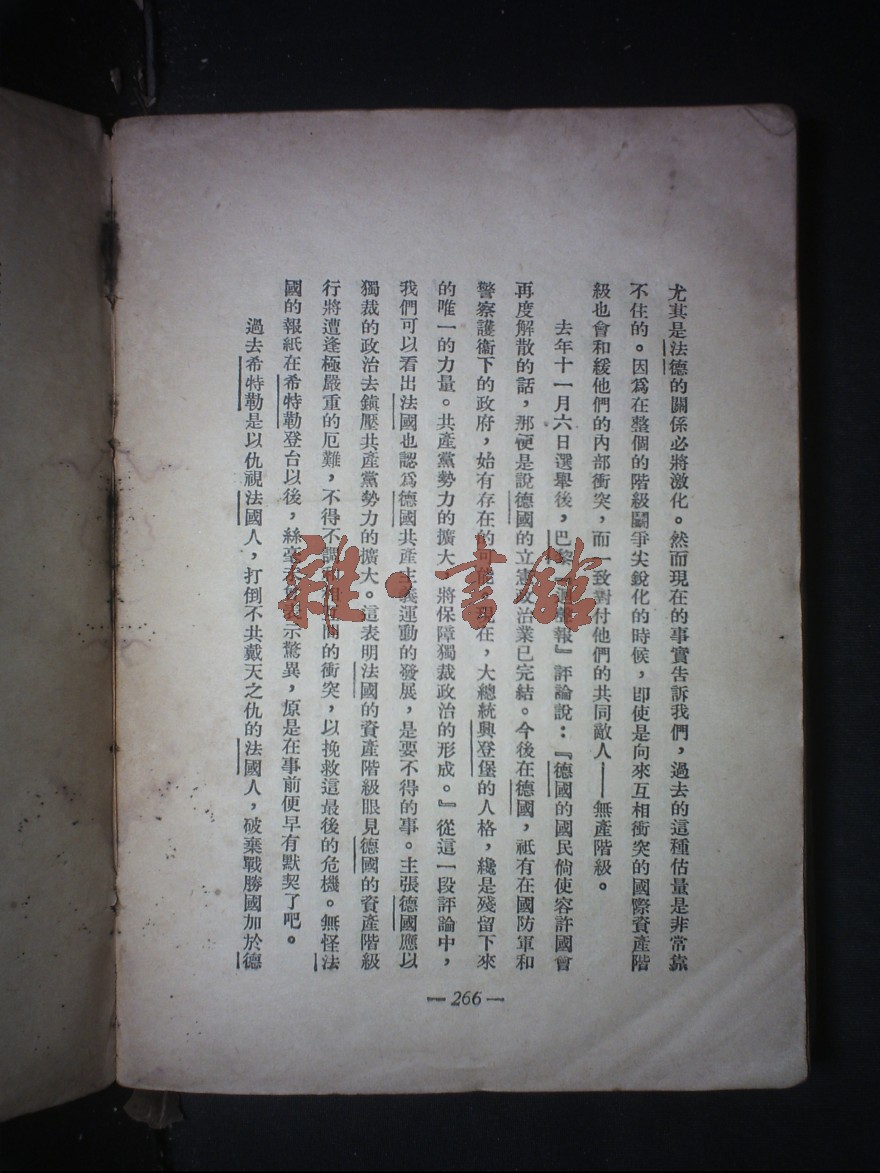 尤其是法德的關係必將激化。然而現在的事實告訴我們，過去的這種估量是非常靠
不住的。因爲在整個的階級鬭爭尖銳化的時候，即使是向來互相衝突的國際資產階
級也會和緩他們的內部衝突，而一致對付他們的共同敵人——無產階級。
去年十一月六日選舉後，巴黎『 報』評論說：『德國的國民倘使容許國會
再度解散的話，那便是說德國的立憲政治業已完結。今後在德國，祇有在國防軍和
警察護衞下的政府，始有存在的可能。現在，大總統興登堡的人格，纔是殘留下來
的唯一的力量。共產黨勢力的擴大，將保障獨裁政治的形成。』從這一段評論中，
我們可以看出法國也認爲德國共產主義運動的發展，是要不得的事。主張德國應以
獨裁的政治去鎭壓共產黨勢力的擴大。這表明法國的資產階級眼見德國的資產階級
行將遭逢極嚴重的厄難，不得不調 的衝突，以挽救這最後的危機。無怪法
國的報紙在希特勒登台以後，絲毫 表示驚異，原是在事前便早有默契了吧。
過去希特勒是以仇視法國人，打倒不共戴天之仇的法國人，破棄戰勝國加於德
— 266 —
雜·書館